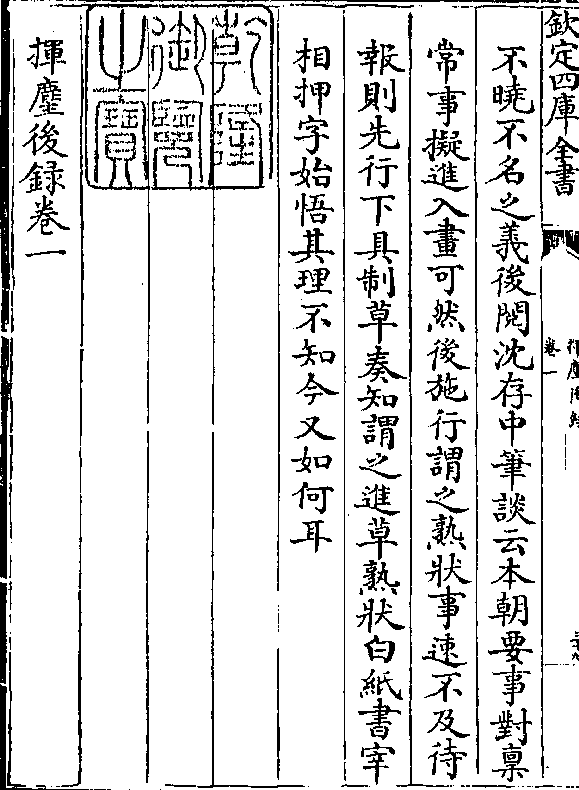 欽定四庫全書
卷一
不曉不名之義後閱沈存中筆談云本朝要事對稟
常事擬進入畫可然後施行謂之熟狀事速不及待
報則先行下具制草奏知謂之進草熟狀白紙書宰
相押字始悟其理不知今又如何耳
乾隆御覽之寶
揮麈後録卷一